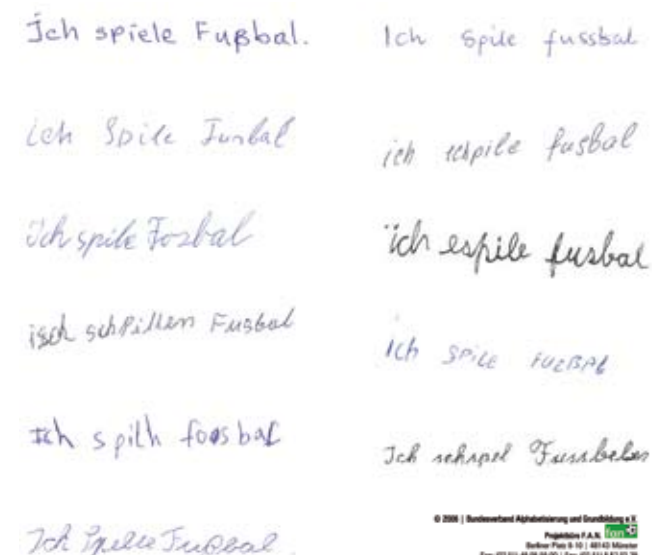 Ich spiele Fußbal.
ich Spile Fusbal
Ich spile Fosbal
isch schpillen Fusbal
Ich spilh foosbal
Ich Spiele Fussbal.
Ich Spile fussbal
ich schpile fusbal
ich espile fusbal
ich SPILE FUZBAL
Ich schspel Fussbelen
© 2006 | Bundesverband Alphabetisierung und Grundbildung e.V.
Projektbüro F.A.N. fan
Berliner Platz 8-10 | 48143 Münster